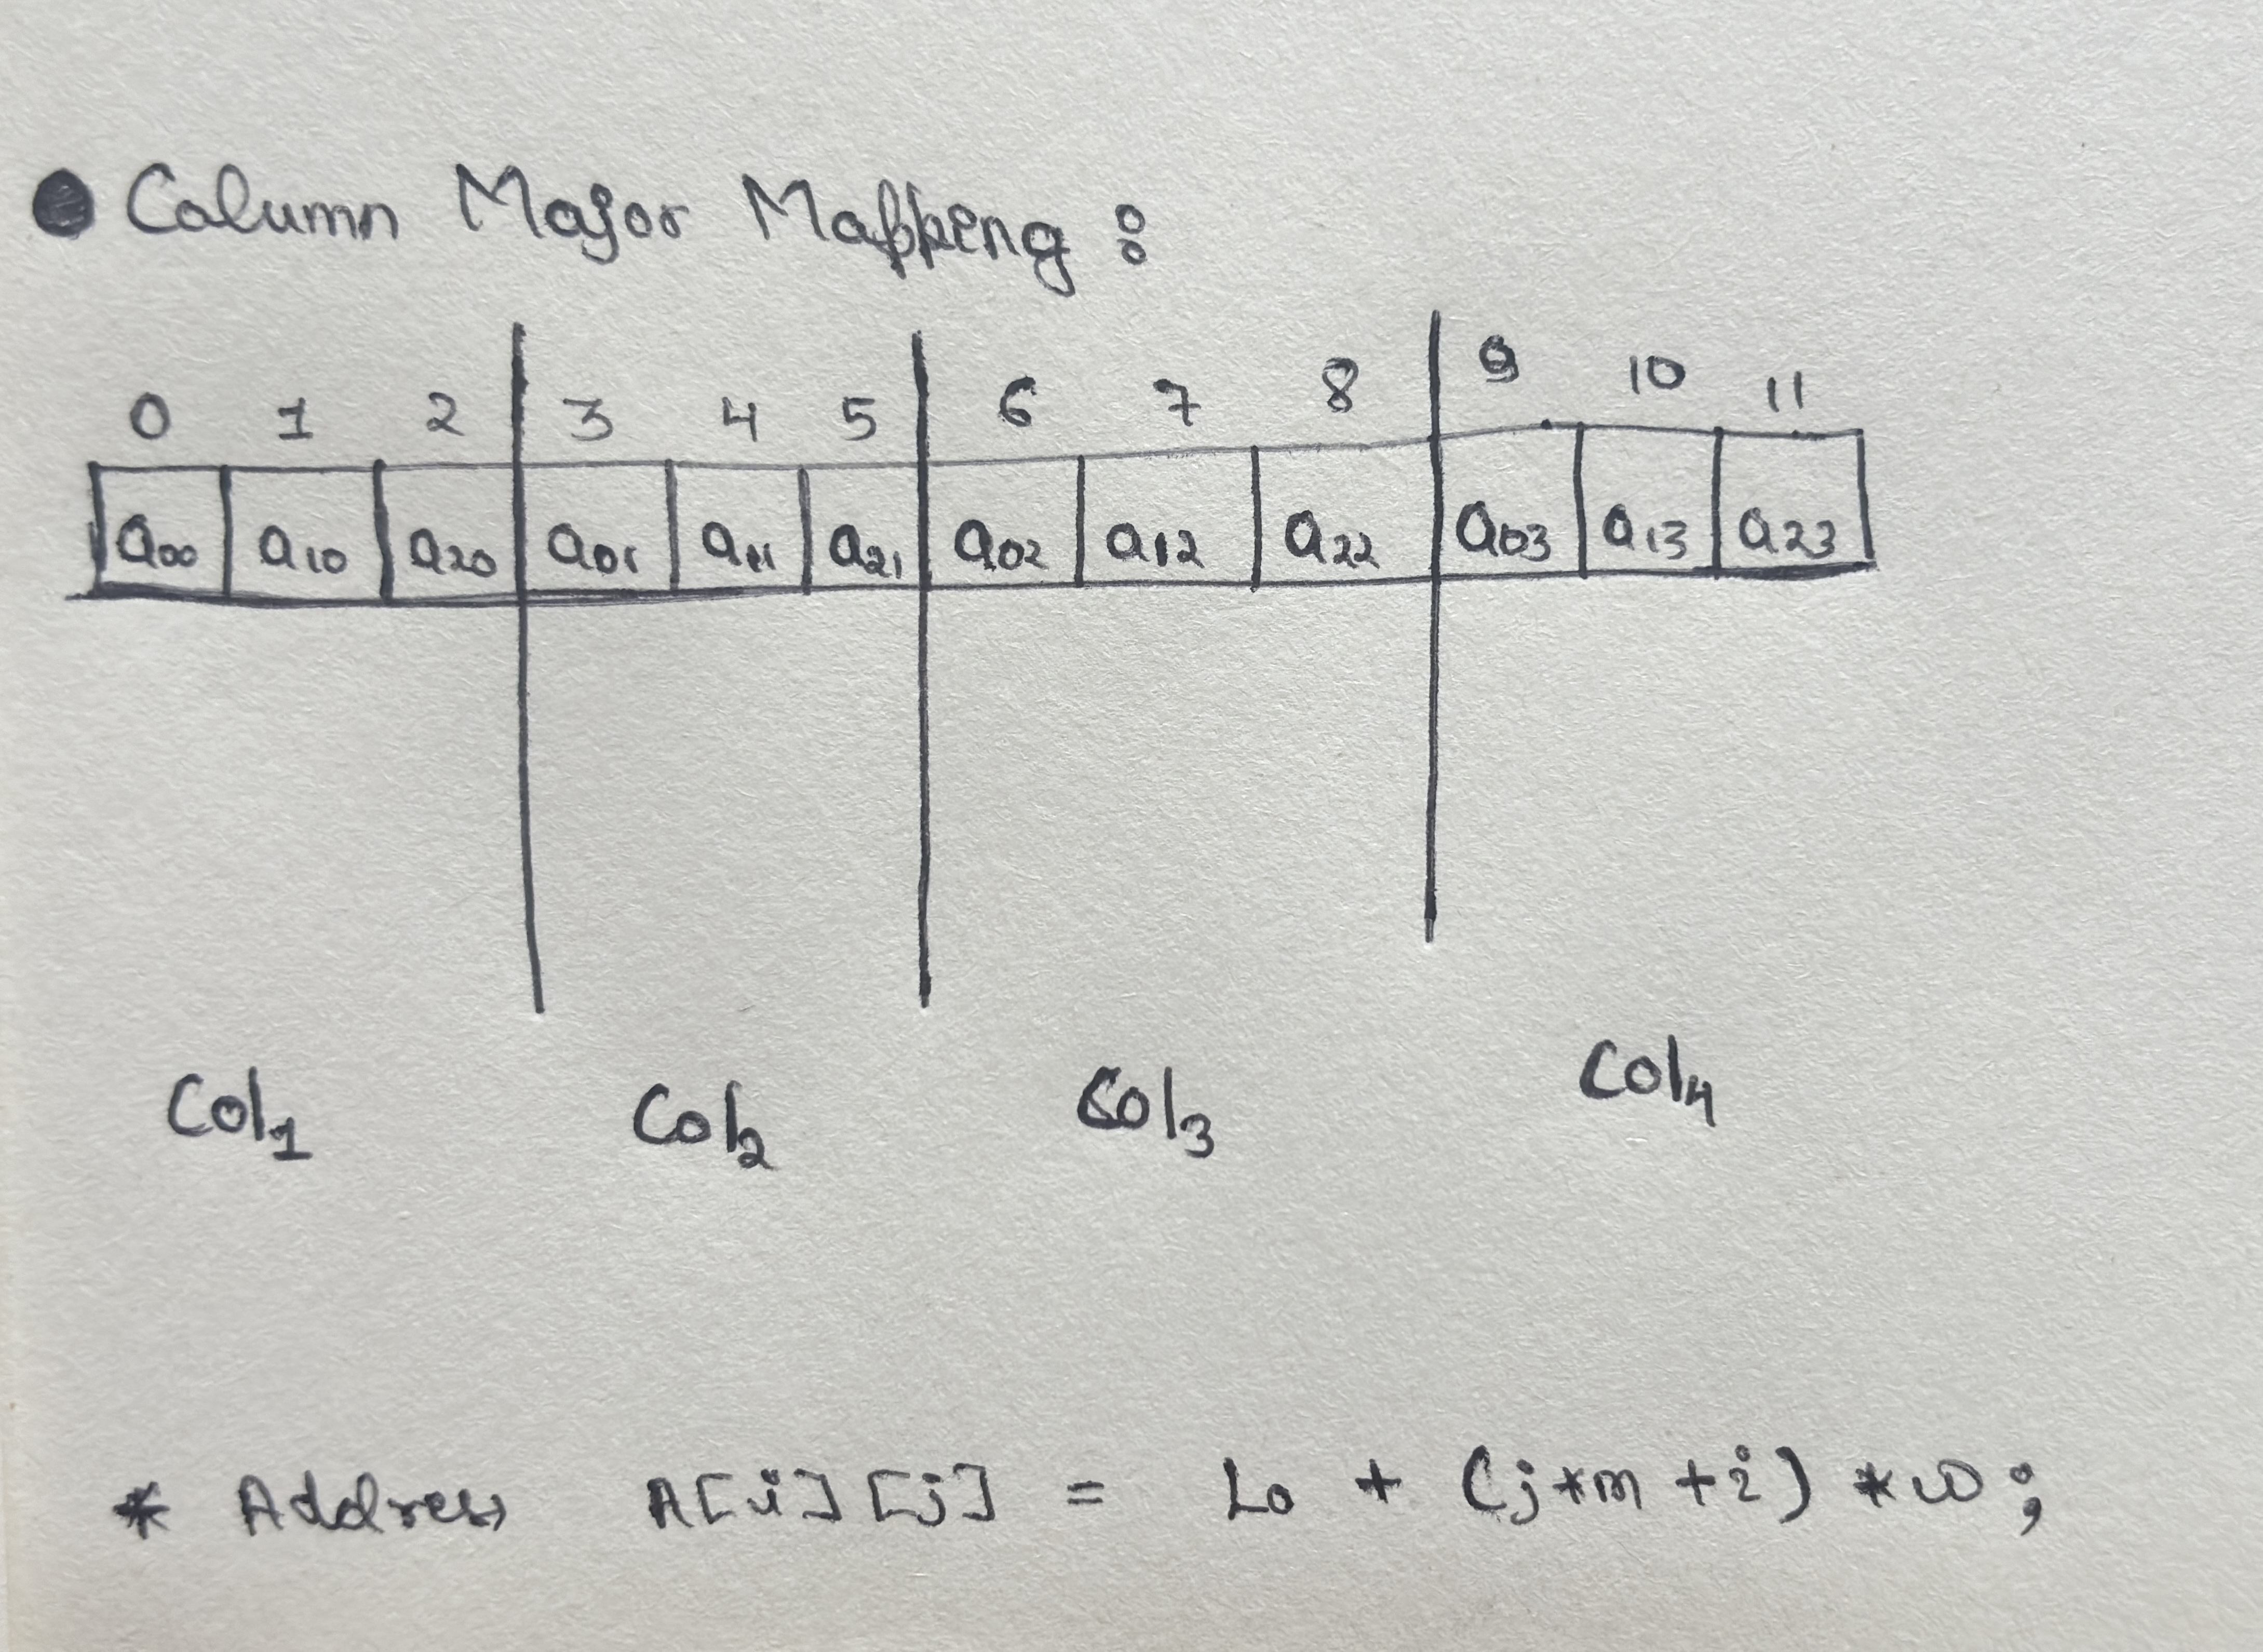 ● Column Major Mapping :
0 1 2 3 4 5 6 7 8 9 10 11
a00 a10 a20 a01 a11 a21 a02 a12 a22 a03 a13 a23
Col1 Col2 Col3 Col4
* Address A[i][j] = Lo + (j*m+i) *w;